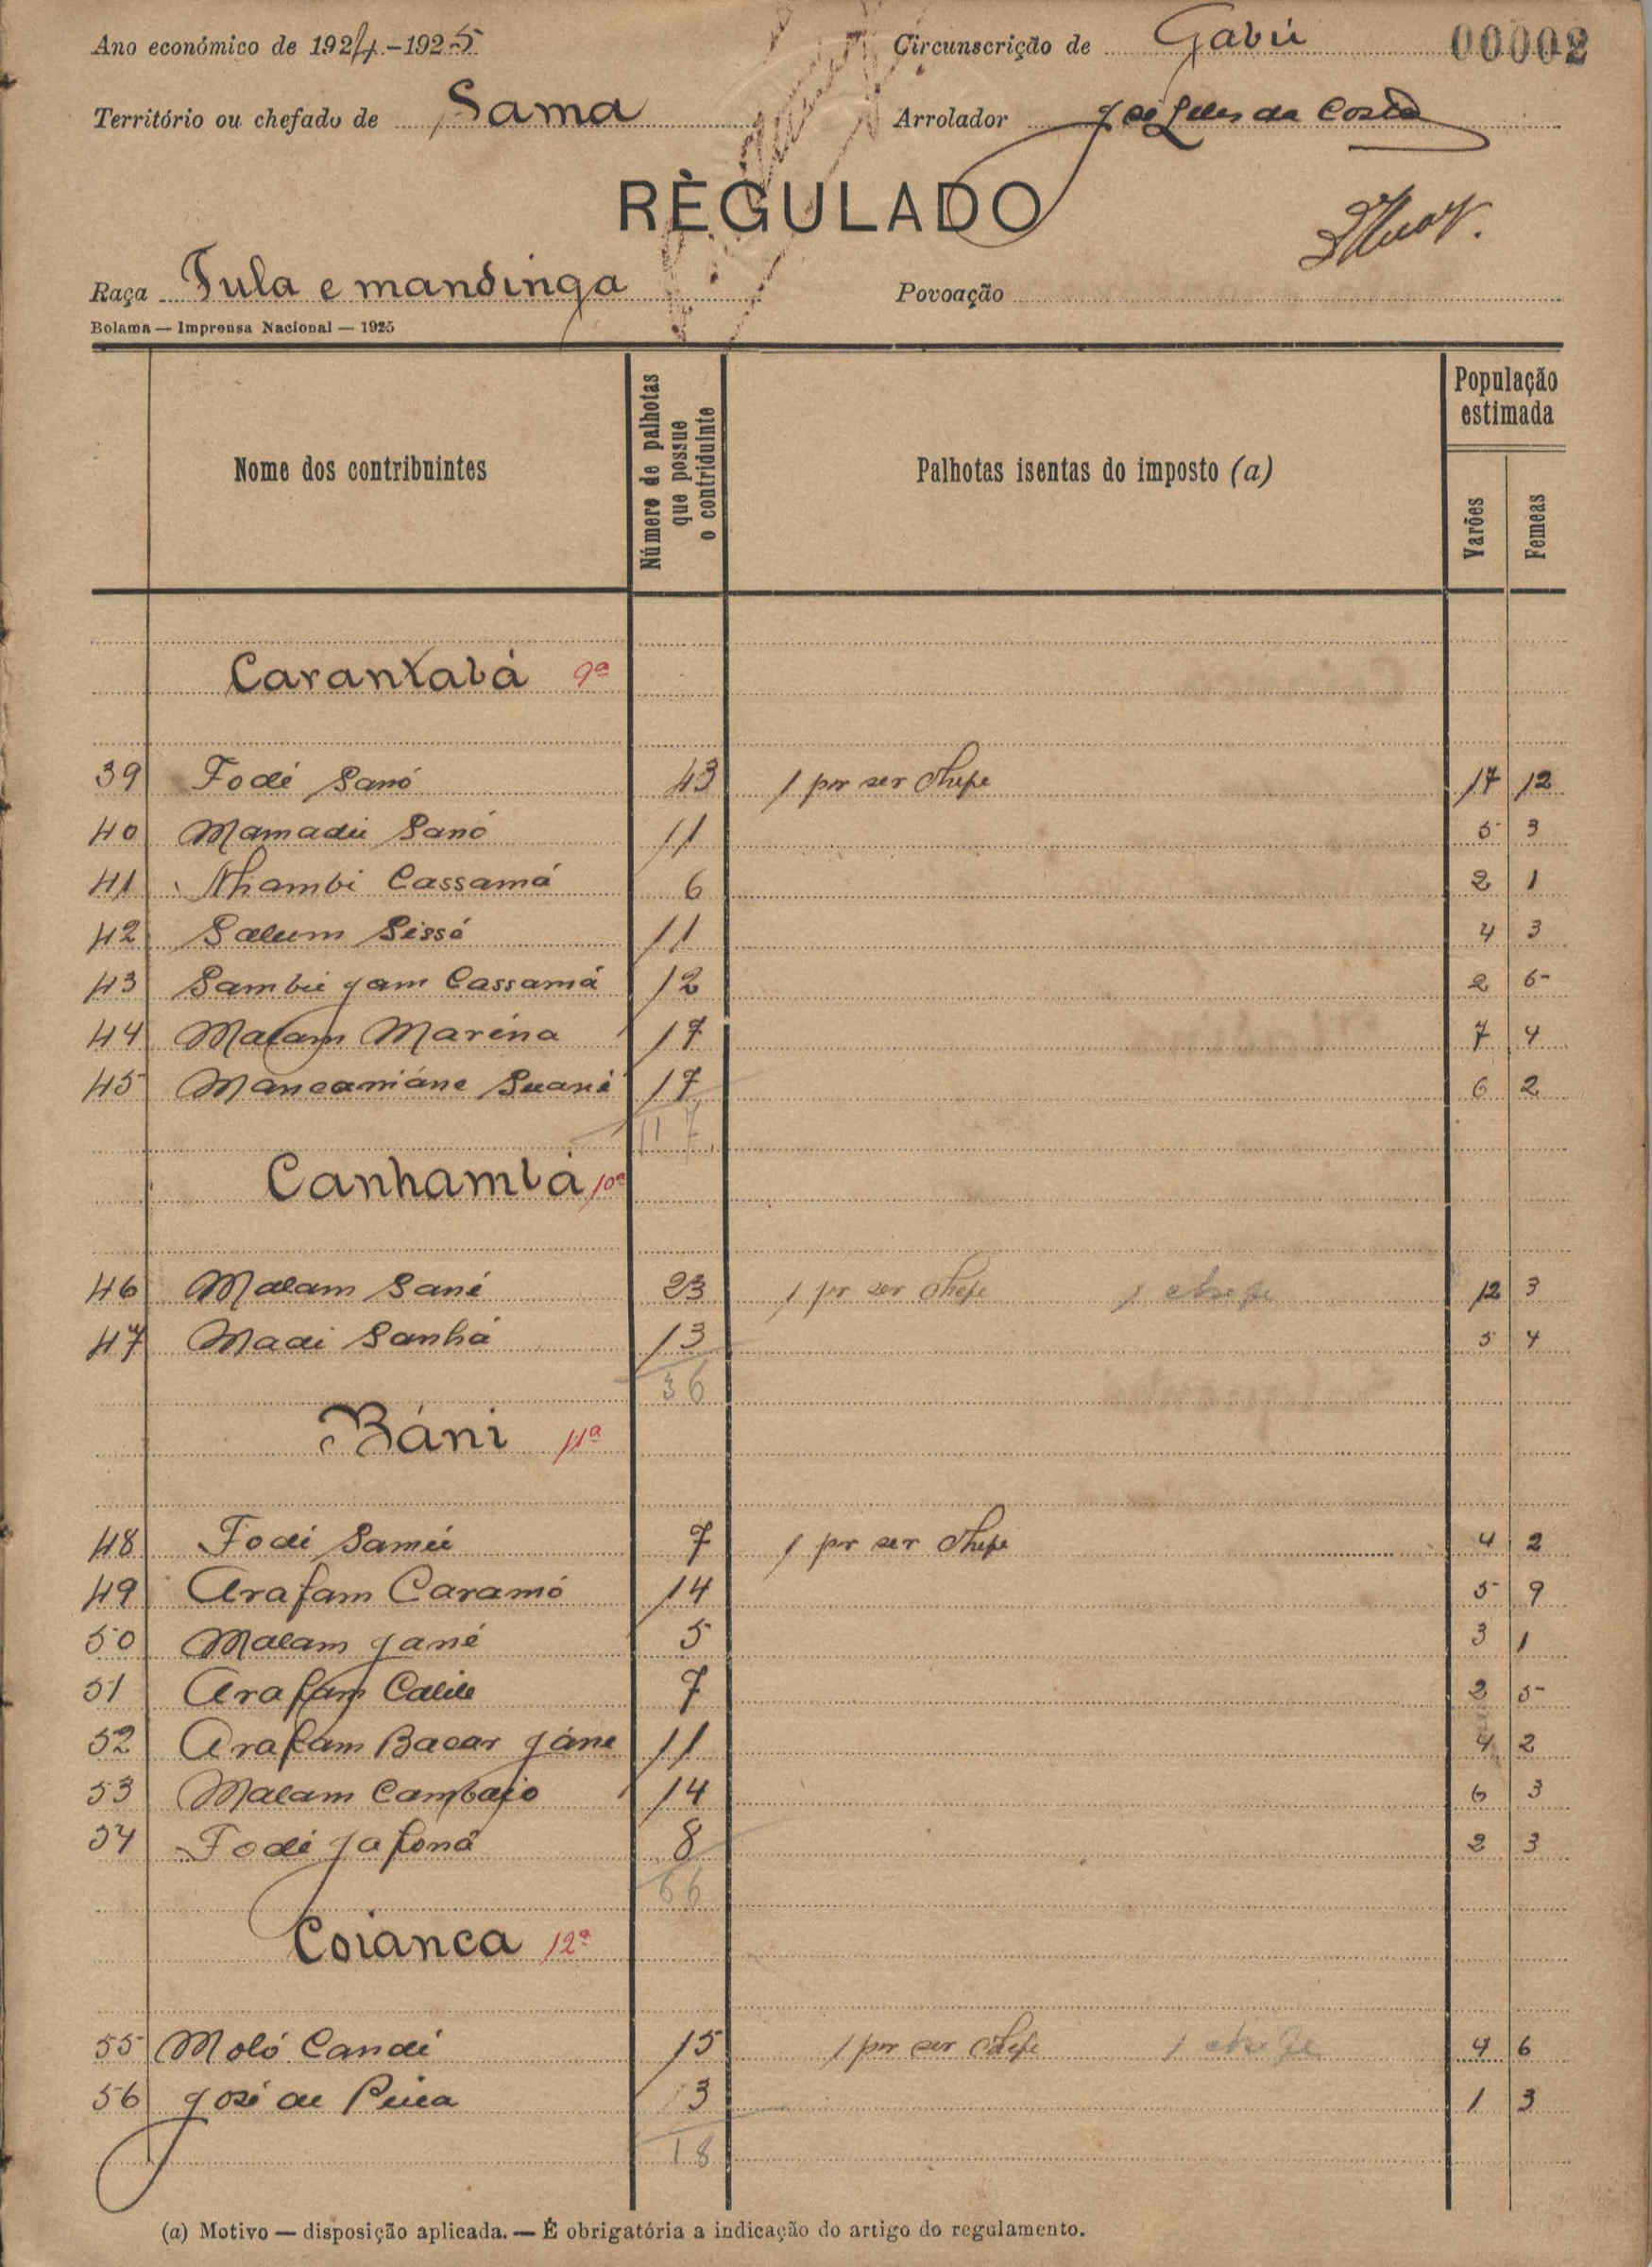 Ano económico de 1924-1925 Circunscrição de Gabú 00002
Território ou chefado de Sama Arrolador José da Costa
RÈGULADO
Raça Fula e mandinga Povoação
Bolama — Imprensa Nacional — 1925
Nome dos contribuintes
Número de palhotas que possue o contriduinte
Palhotas isentas do imposto (a)
População estimada
Varões
Femeas
Carantabá 9ª
39 Fodé Sanó 43 1 por ser Chefe 17 12
40 Mamadú Sanó 11 5 3
41 Nhambi Cassamá 6 2 1
42 Salum Sissé 11 4 3
43 Sambú jam Cassamá 12 2 5
44 Malam Marena 17 7 4
45 Mancamáne Suané 17 6 2
117
Canhambá 10ª
46 Malam Sané 23 1 por ser Chefe 1 chefe 12 3
47 Madi Sanhá 13 5 4
36
Báni 11ª
48 Fodé Samú 7 1 por ser Chefe 4 2
49 Arafam Caramó 14 5 9
50 Malam jané 5 3 1
51 Arafam 7 2 5
52 Arafam Bacar jáne 11 4 2
53 Malam Cambajo 14 6 3
54 Fodé jafoná 8 2 3
66
Coianca 12ª
55 Moló Candé 15 1 por ser Chefe 1 chefe 4 6
56 José 3 1 3
18
(a) Motivo — disposição aplicada. — É obrigatória a indicação do artigo do regulamento.